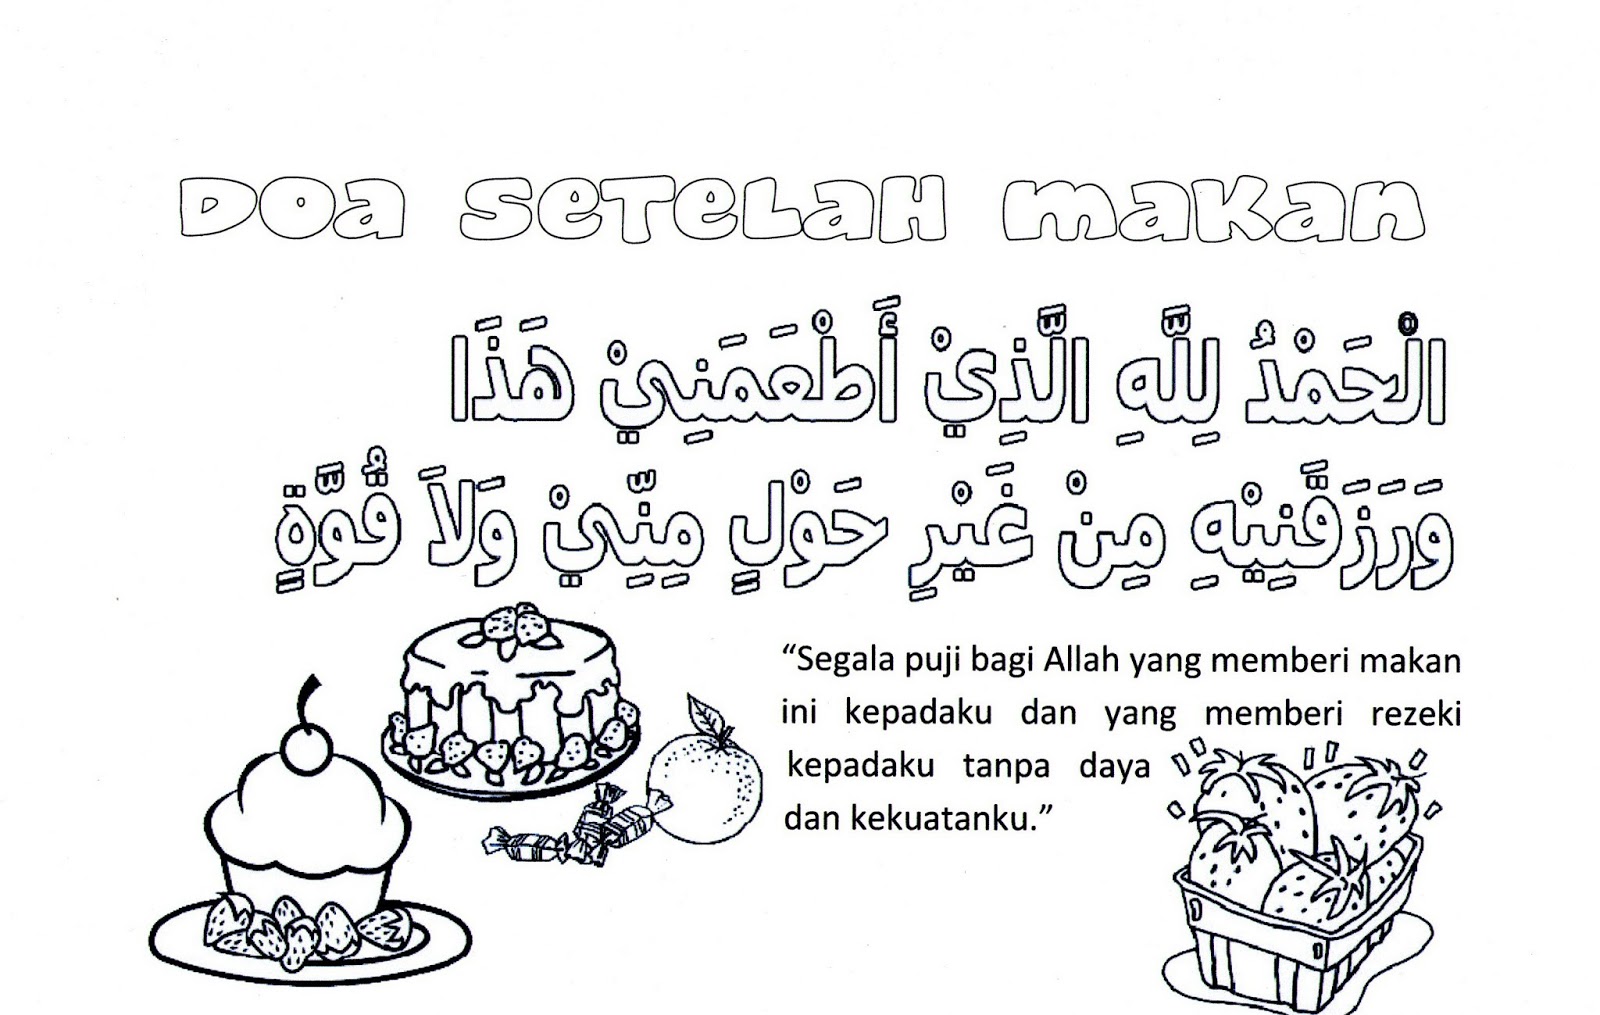 Doa Setelah Makan
الْحَمْدُ لِلَّهِ الَّذِيْ أَطْعَمَنِيْ هَذَا
وَرَزَقَنِيْهِ مِنْ غَيْرِ حَوْلٍ مِنِّيْ وَلاَ قُوَّةٍ
“Segala puji bagi Allah yang memberi makan
ini kepadaku dan yang memberi rezeki
kepadaku tanpa daya
dan kekuatanku.”